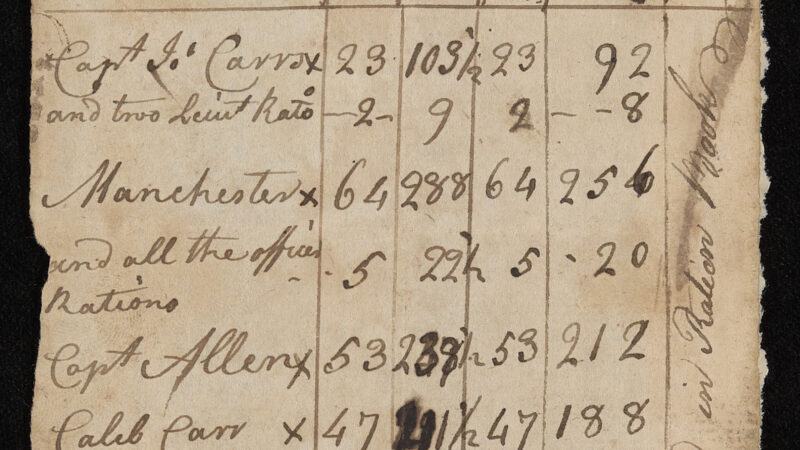 Capt Js Carrs x 23 103½ 23 92
and two Leiut Rato - 2 - 9 2 - - 8
Manchester x 64 288 64 256
and all the officers - 5 22½ 5 - 20
Rations
Capt Allen x 53 238½ 53 212
Caleb Carr x 47 211½ 47 188
in Ration Book